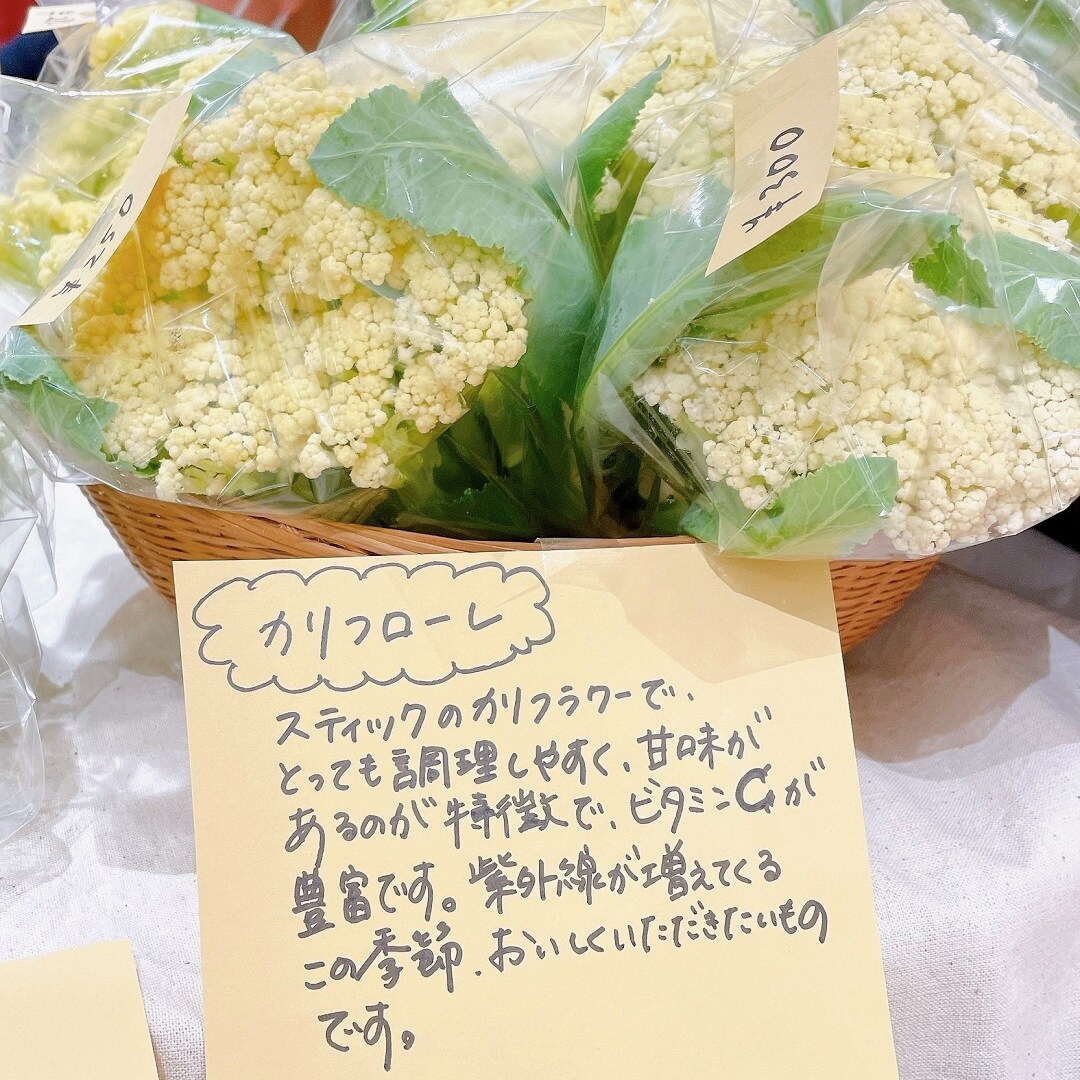 ¥250
¥300
カリフローレ
スティックのカリフラワーで、
とっても調理しやすく、甘味が
あるのが特徴で、ビタミンCが
豊富です。紫外線が増えてくる
この季節、おいしくいただきたいもの
です。